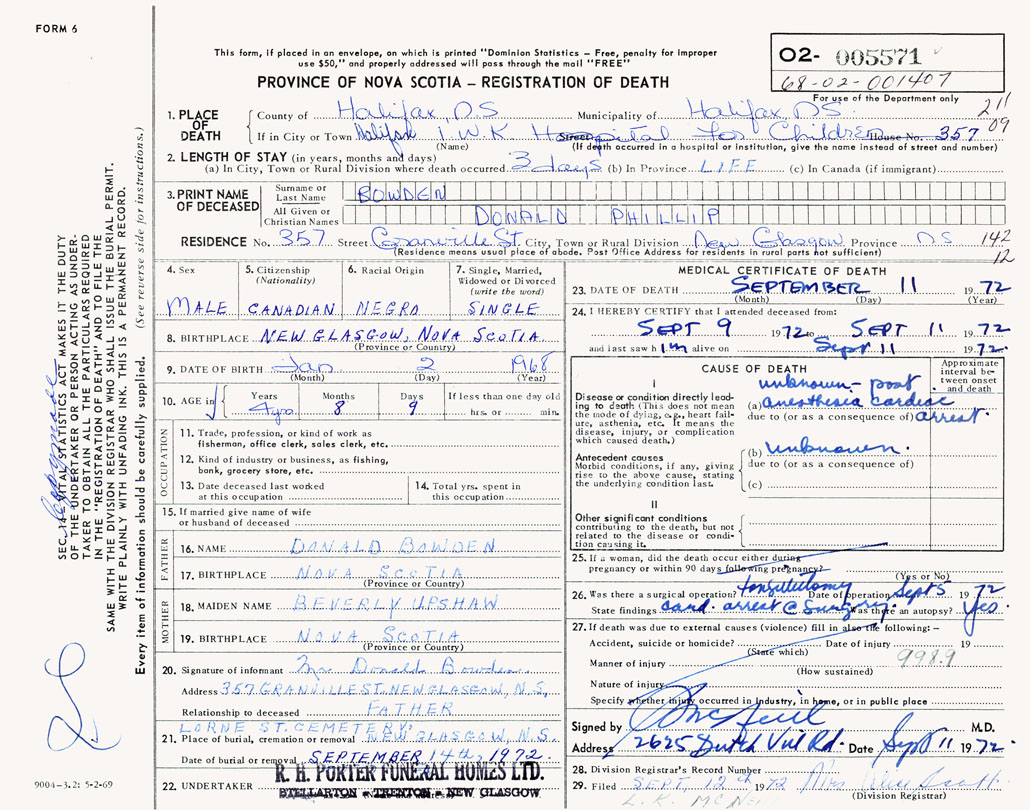 FORM 6
This form, if placed in an envelope, on which is printed "Dominion Statistics – Free, penalty for improper
use $50," and properly addressed will pass through the mail "FREE"
PROVINCE OF NOVA SCOTIA – REGISTRATION OF DEATH
02- 005571
68-02-001407
For use of the Department only
211
09
1. PLACE OF DEATH
County of Halifax, N.S Municipality of Halifax, N.S.
If in City or Town Halifax I.W.K Street Hospital for Children House No. 357
(Name) (If death occurred in a hospital or institution, give the name instead of street and number)
2. LENGTH OF STAY (in years, months and days)
(a) In City, Town or Rural Division where death occurred 3 days (b) In Province LIFE (c) In Canada (if immigrant)
3. PRINT NAME OF DECEASED
Surname or Last Name BOWDEN
All Given or Christian Names DONALD PHILLIP
RESIDENCE No. 357 Street Granville St. City, Town or Rural Division New Glasgow Province NS 142
12
(Residence means usual place of abode. Post Office Address for residents in rural parts not sufficient)
4. Sex
MALE
5. Citizenship
(Nationality)
CANADIAN
6. Racial Origin
NEGRO
7. Single, Married,
Widowed or Divorced
(write the word)
SINGLE
8. BIRTHPLACE NEW GLASGOW, NOVA SCOTIA
(Province or Country)
9. DATE OF BIRTH Jan 2 1968
(Month) (Day) (Year)
10. AGE in
Years Months Days If less than one day old
4yrs 8 9 hrs. or min.
OCCUPATION
11. Trade, profession, or kind of work as
fisherman, office clerk, sales clerk, etc.
12. Kind of industry or business, as fishing,
bank, grocery store, etc.
13. Date deceased last worked
at this occupation
14. Total yrs. spent in
this occupation
15. If married give name of wife
or husband of deceased
FATHER
16. NAME DONALD BOWDEN
17. BIRTHPLACE NOVA SCOTIA
(Province or Country)
MOTHER
18. MAIDEN NAME BEVERLY UPSHAW
19. BIRTHPLACE NOVA SCOTIA
(Province or Country)
20. Signature of informant Mr. Donald Bowden
Address 357 GRANVILLE ST. NEW GLASGOW, N.S.
Relationship to deceased FATHER
LORNE ST. CEMETERY
21. Place of burial, cremation or removal NEW GLASGOW, N.S.
Date of burial or removal SEPTEMBER 14th, 1972.
22. UNDERTAKER R. H. PORTER FUNERAL HOMES LTD.
STELLARTON – TRENTON – NEW GLASGOW
MEDICAL CERTIFICATE OF DEATH
23. DATE OF DEATH SEPTEMBER 11 1972
(Month) (Day) (Year)
24. I HEREBY CERTIFY that I attended deceased from:
SEPT 9 1972 to SEPT 11 1972
and last saw him alive on Sept 11 1972.
CAUSE OF DEATH
Approximate
interval be-
tween onset
and death
I
Disease or condition directly lead-
ing to death (This does not mean
the mode of dying, e.g., heart fail-
ure, asthenia, etc. It means the
disease, injury, or complication
which caused death.)
unknown – post
(a) anesthesia cardiac
due to (or as a consequence of) arrest.
Antecedent causes
Morbid conditions, if any, giving
rise to the above cause, stating
the underlying condition last.
(b) unknown.
due to (or as a consequence of)
(c)
II
Other significant conditions
contributing to the death, but not
related to the disease or condi-
tion causing it.
25. If a woman, did the death occur either during
pregnancy or within 90 days following pregnancy?
(Yes or No)
26. Was there a surgical operation? tonsillectomy Date of operation Sept 5 1972
State findings card. arrest @ Surgery. Was there an autopsy? Yes.
27. If death was due to external causes (violence) fill in also the following: –
Accident, suicide or homicide? Date of injury 19
(State which) 998.9
Manner of injury
(How sustained)
Nature of injury
Specify whether injury occurred in industry, in home, or in public place
Signed by M.D.
Address 2625 Dutch Vil Rd. Date Sept 11 1972.
28. Division Registrar's Record Number
29. Filed SEPT. 12th 1972 Mrs
(Division Registrar)
9004-3.2: 5-2-69
SEC. 14 – VITAL STATISTICS ACT MAKES IT THE DUTY
OF THE UNDERTAKER OR PERSON ACTING AS UNDER-
TAKER TO OBTAIN ALL THE PARTICULARS REQUIRED
IN THE "REGISTRATION OF DEATH" AND TO FILE THE
SAME WITH THE DIVISION REGISTRAR WHO SHALL ISSUE THE BURIAL PERMIT.
WRITE PLAINLY WITH UNFADING INK. THIS IS A PERMANENT RECORD.
Every item of information should be carefully supplied. (See reverse side for instructions.)